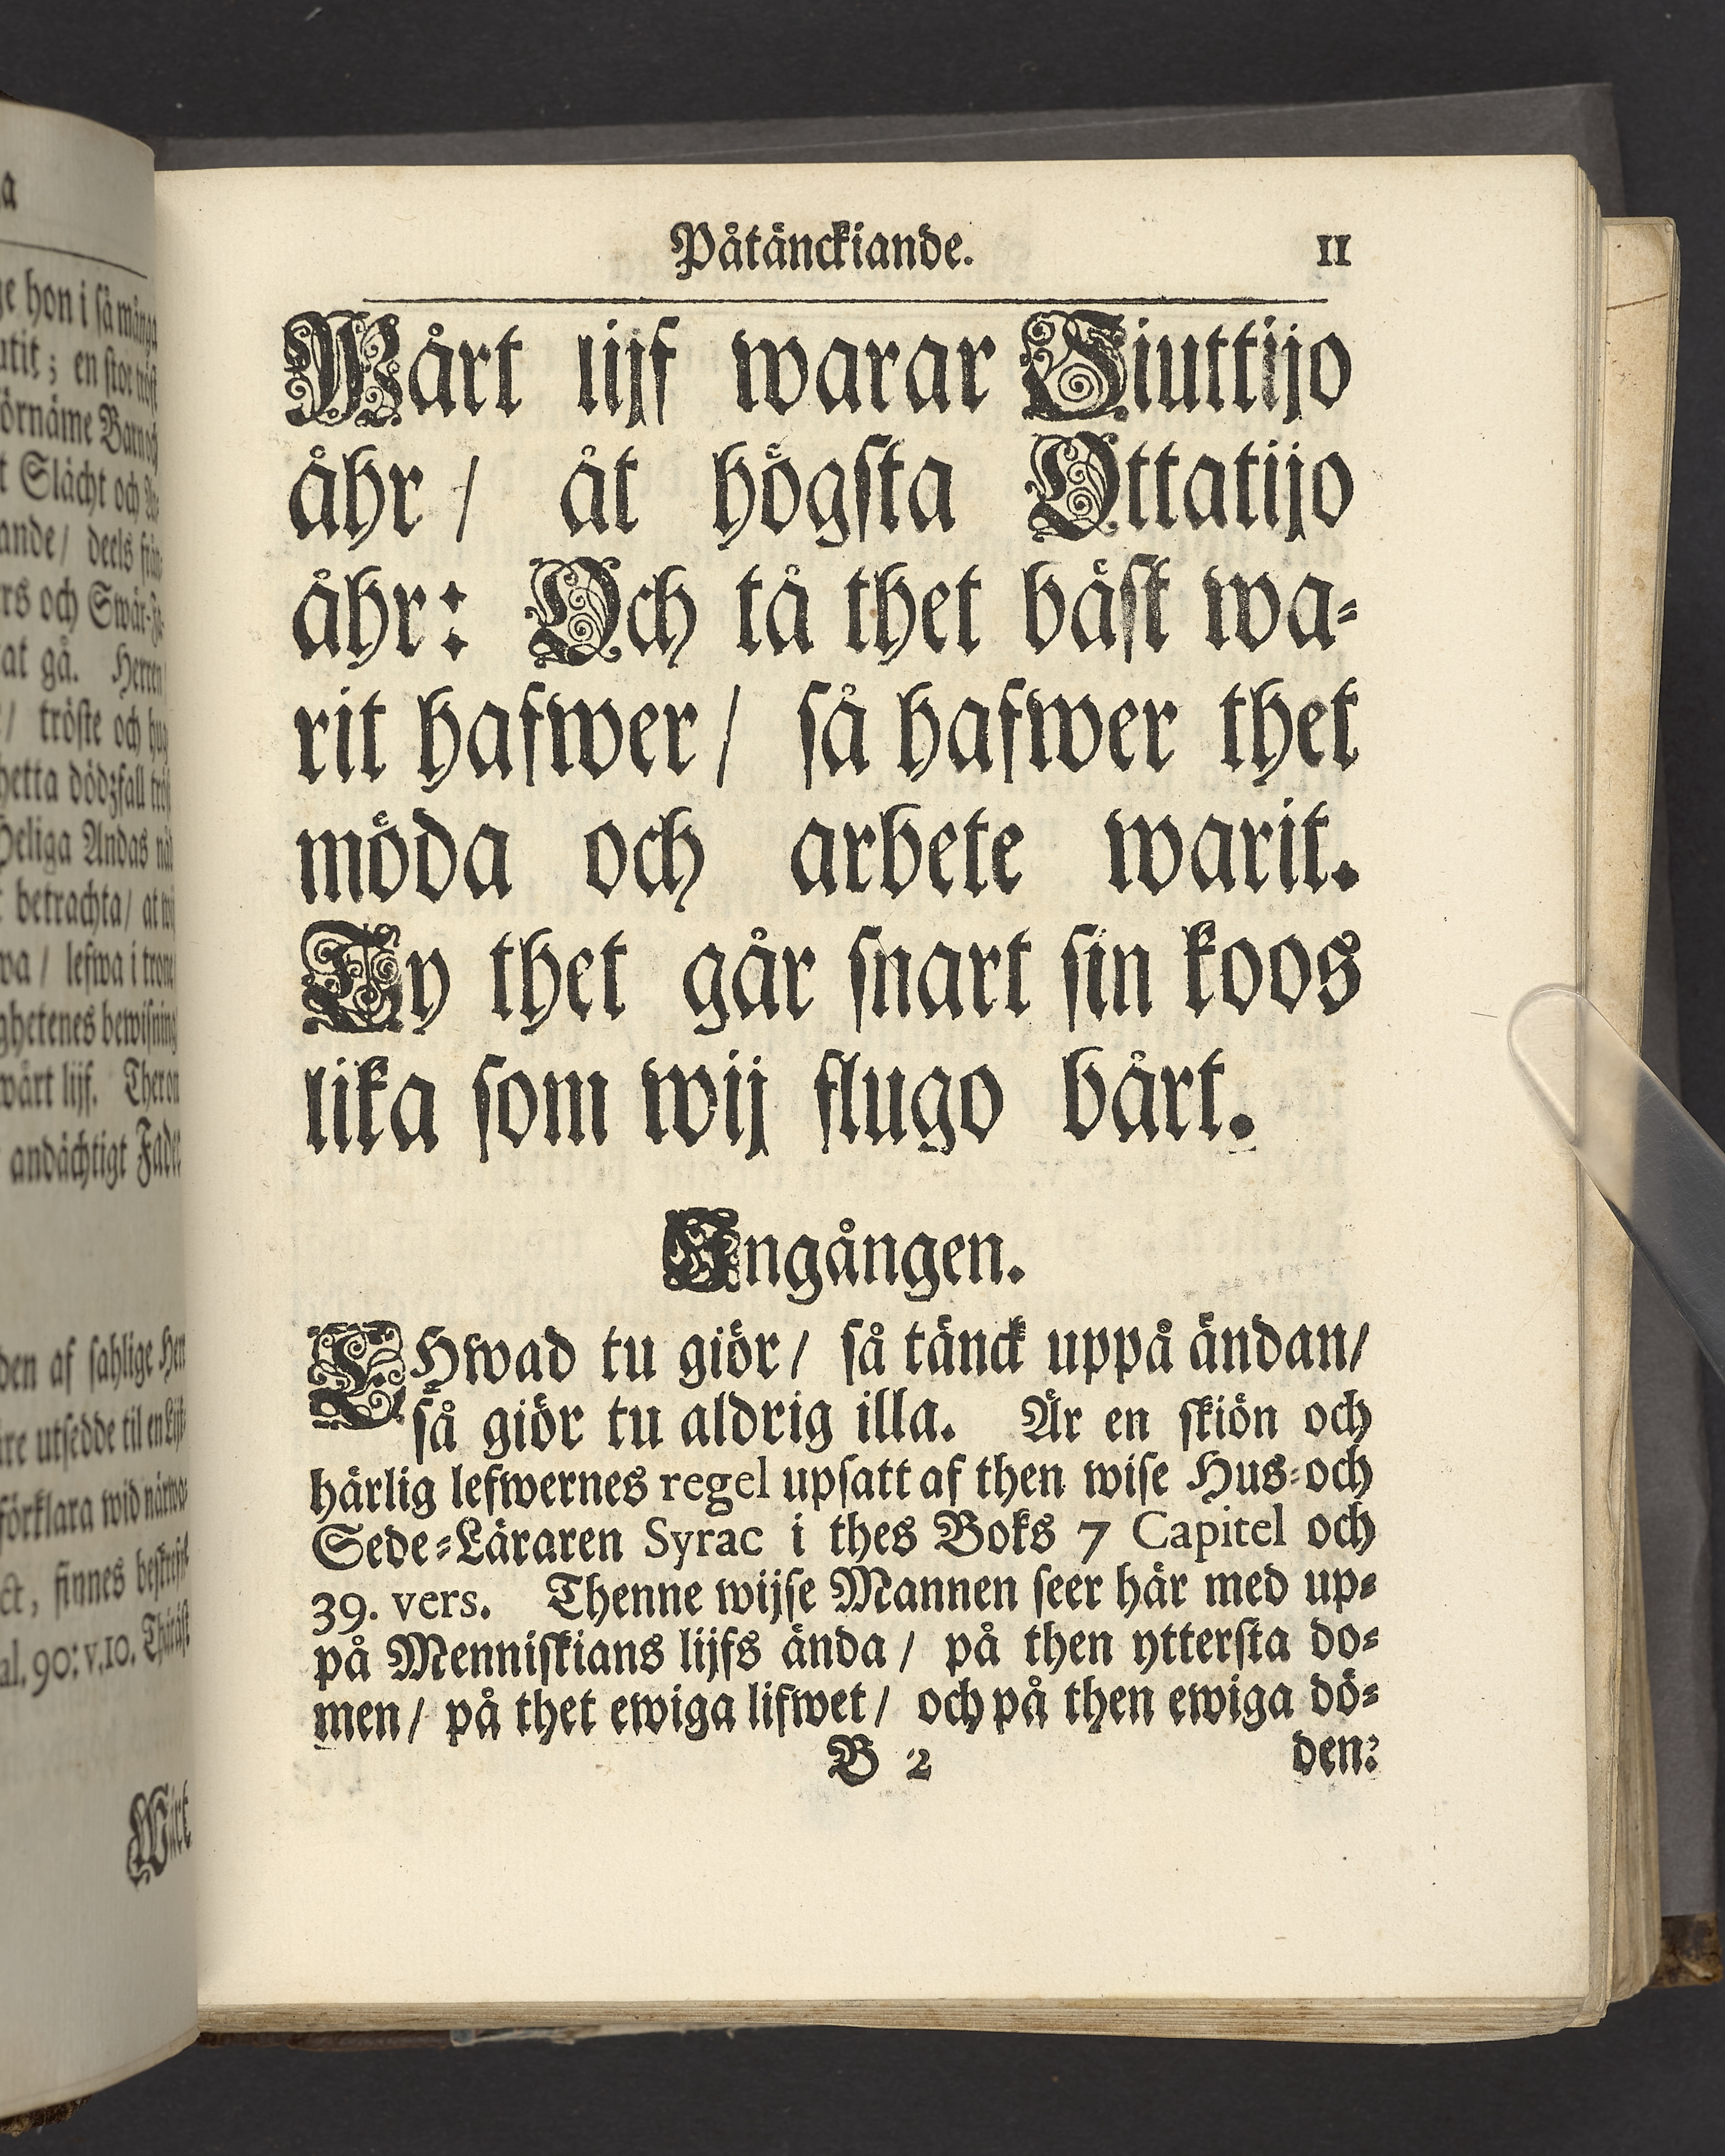 hon i så många
en stor tröst
Barn och
Slächt och
deels
och
at gå. Herren
tröste och
dödzfall
Andas
betrachta/ at wij
lefwa i trone
bewisning
wårt lijf.
andächtigt
af sahlige
utsedde til
förklara wid
finnes
90: v. 10.
Wårt
Påtänckiande. 11
Wårt lijf warar Siuttijo
åhr / åt högsta Ottatijo
åhr: Och tå thet bäst wa-
rit hafwer / så hafwer thet
möda och arbete warit.
Ty thet går snart sin koos
lika som wij flugo bårt.
Ingången.
EHwad tu giör / så tänck uppå ändan/
så giör tu aldrig illa. Är en skiön och
härlig lefwernes regel upsatt af then wise Hus-och
Sede-Läraren Syrac i thes Boks 7 Capitel och
39. vers. Thenne wijse Mannen seer här med up-
på Menniskians lijfs ända / på then yttersta do-
men / på thet ewiga lifwet / och på then ewiga dö-
B 2 den: